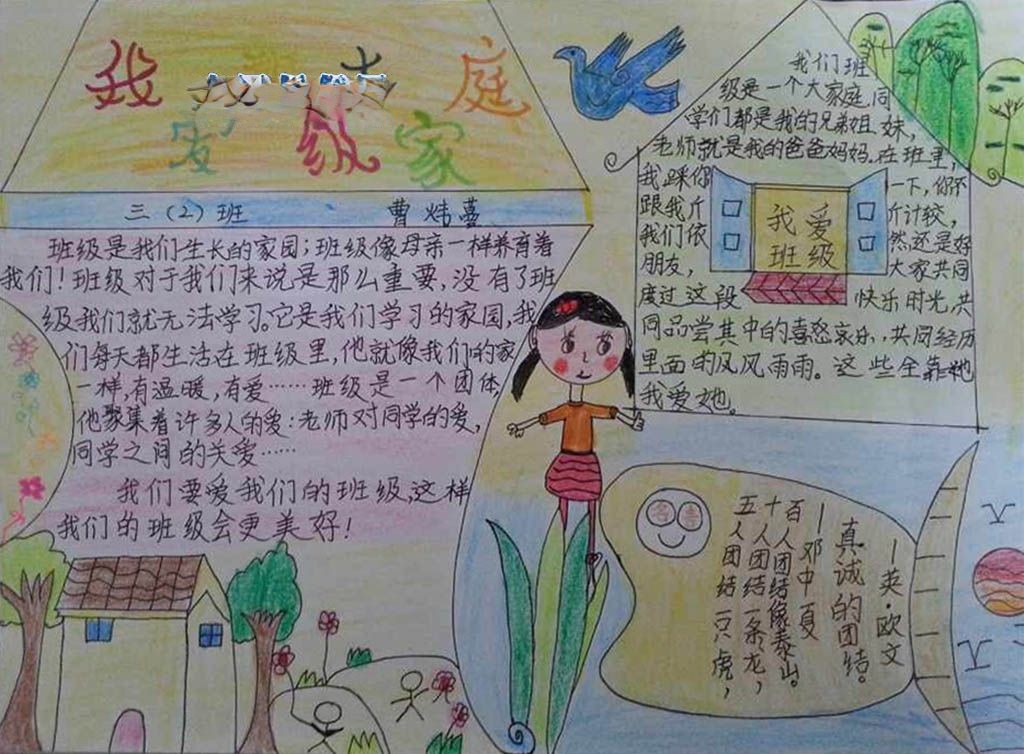 我
庭
级 家
三（2）班
曹炜蔓
班级是我们生长的家园；班级像母亲一样养育着
我们！班级对于我们来说是那么重要，没有了班
级我们就无法学习。它是我们学习的家园，我
们每天都生活在班级里，他就像我们的家
一样，有温暖，有爱……班级是一个团体，
他聚集着许多人的爱：老师对同学的爱，
同学之间的关爱……
我们要爱我们的班级，这样
我们的班级会更美好！
我们班
级是一个大家庭，同
学们都是我的兄弟姐、妹，
老师就是我的爸爸妈妈。在班里，
我踩你 一下，你怀
跟我斤 斤计较，
我们依 然还是好
朋友， 大家共同
度过这段 快乐时光，共
同品尝其中的喜怒哀乐，共同经历
里面的风风雨雨。这些全靠她
我爱她。
我爱
班级
名言
五人团结一只虎，
十人团结一条龙，
百人团结像泰山。
—邓中夏
真诚的团结。
—英·欧文